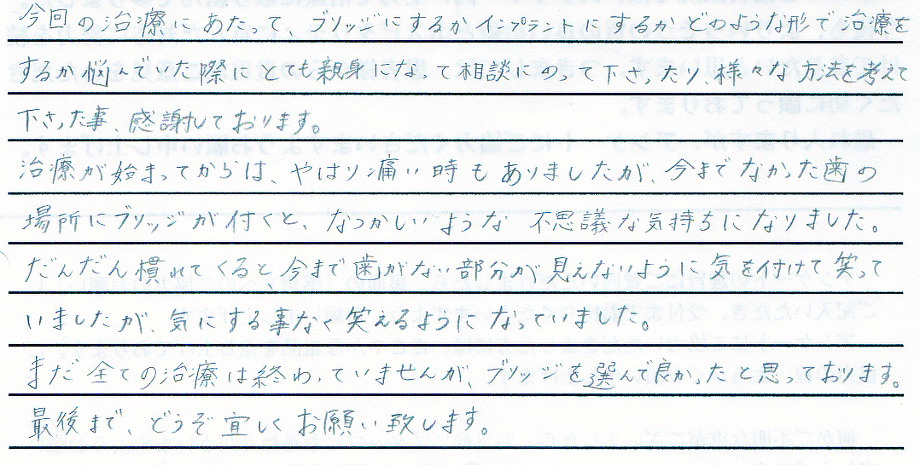 今回の治療にあたって、ブリッジにするかインプラントにするかどのような形で治療を
するか悩んでいた際にとても親身になって相談にのって下さったり、様々な方法を考えて
下さった事 感謝しております。
治療が始まってからは、やはり痛い時もありましたが、今までなかった歯の
場所にブリッジが付くと、なつかしいような 不思議な気持ちになりました。
だんだん慣れてくると、今まで歯がない部分が見えないように気を付けて笑って
いましたが、気にする事なく笑えるようになっていました。
まだ全ての治療は終わっていませんが、ブリッジを選んで良かったと思っております。
最後まで、どうぞ宜しくお願い致します。